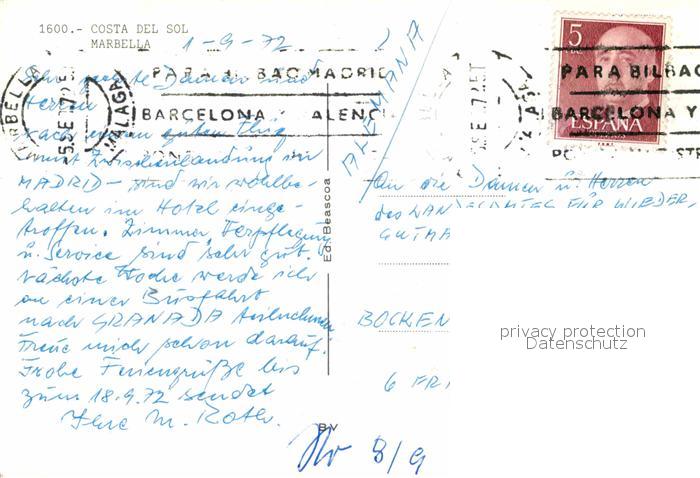 1600.- COSTA DEL SOL
MARBELLA
1-9-72
Sehr geehrte Damen und
Herren
nach einem guten Flug
mit Zwischenlandung in
MADRID - sind wir wohlbe-
halten im Hotel einge-
troffen. Zimmer, Verpflegung
u. Service sind sehr gut.
nächste Woche werde ich
an einer Busfahrt
nach GRANADA teilnehmen
Freue mich schon darauf.
Frohe Feriengrüße bis
zum 18.9.72 sendet
Ihre M. Roth.
MARBELLA
MALAGA
PARA BILBAO MADRID
BARCELONA Y VALENC
Ed. Beascoa
B.V
ALEMANIA
5
PTAS
ESPAÑA
PARA BILBAO
BARCELONA Y
An die Damen u. Herren
des LAN
FÜR WIEDER,
GUTMA
BOCKEN
6 FR
8/9
privacy protection
Datenschutz